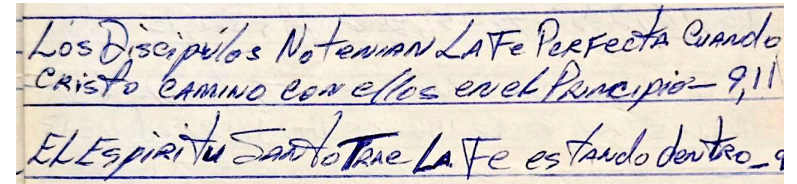 Los Discipulos No tenian La Fe Perfecta Cuando
Cristo camino con ellos en el Principio - 9,11
El Espiritu Santo Trae La Fe estando dentro - 9